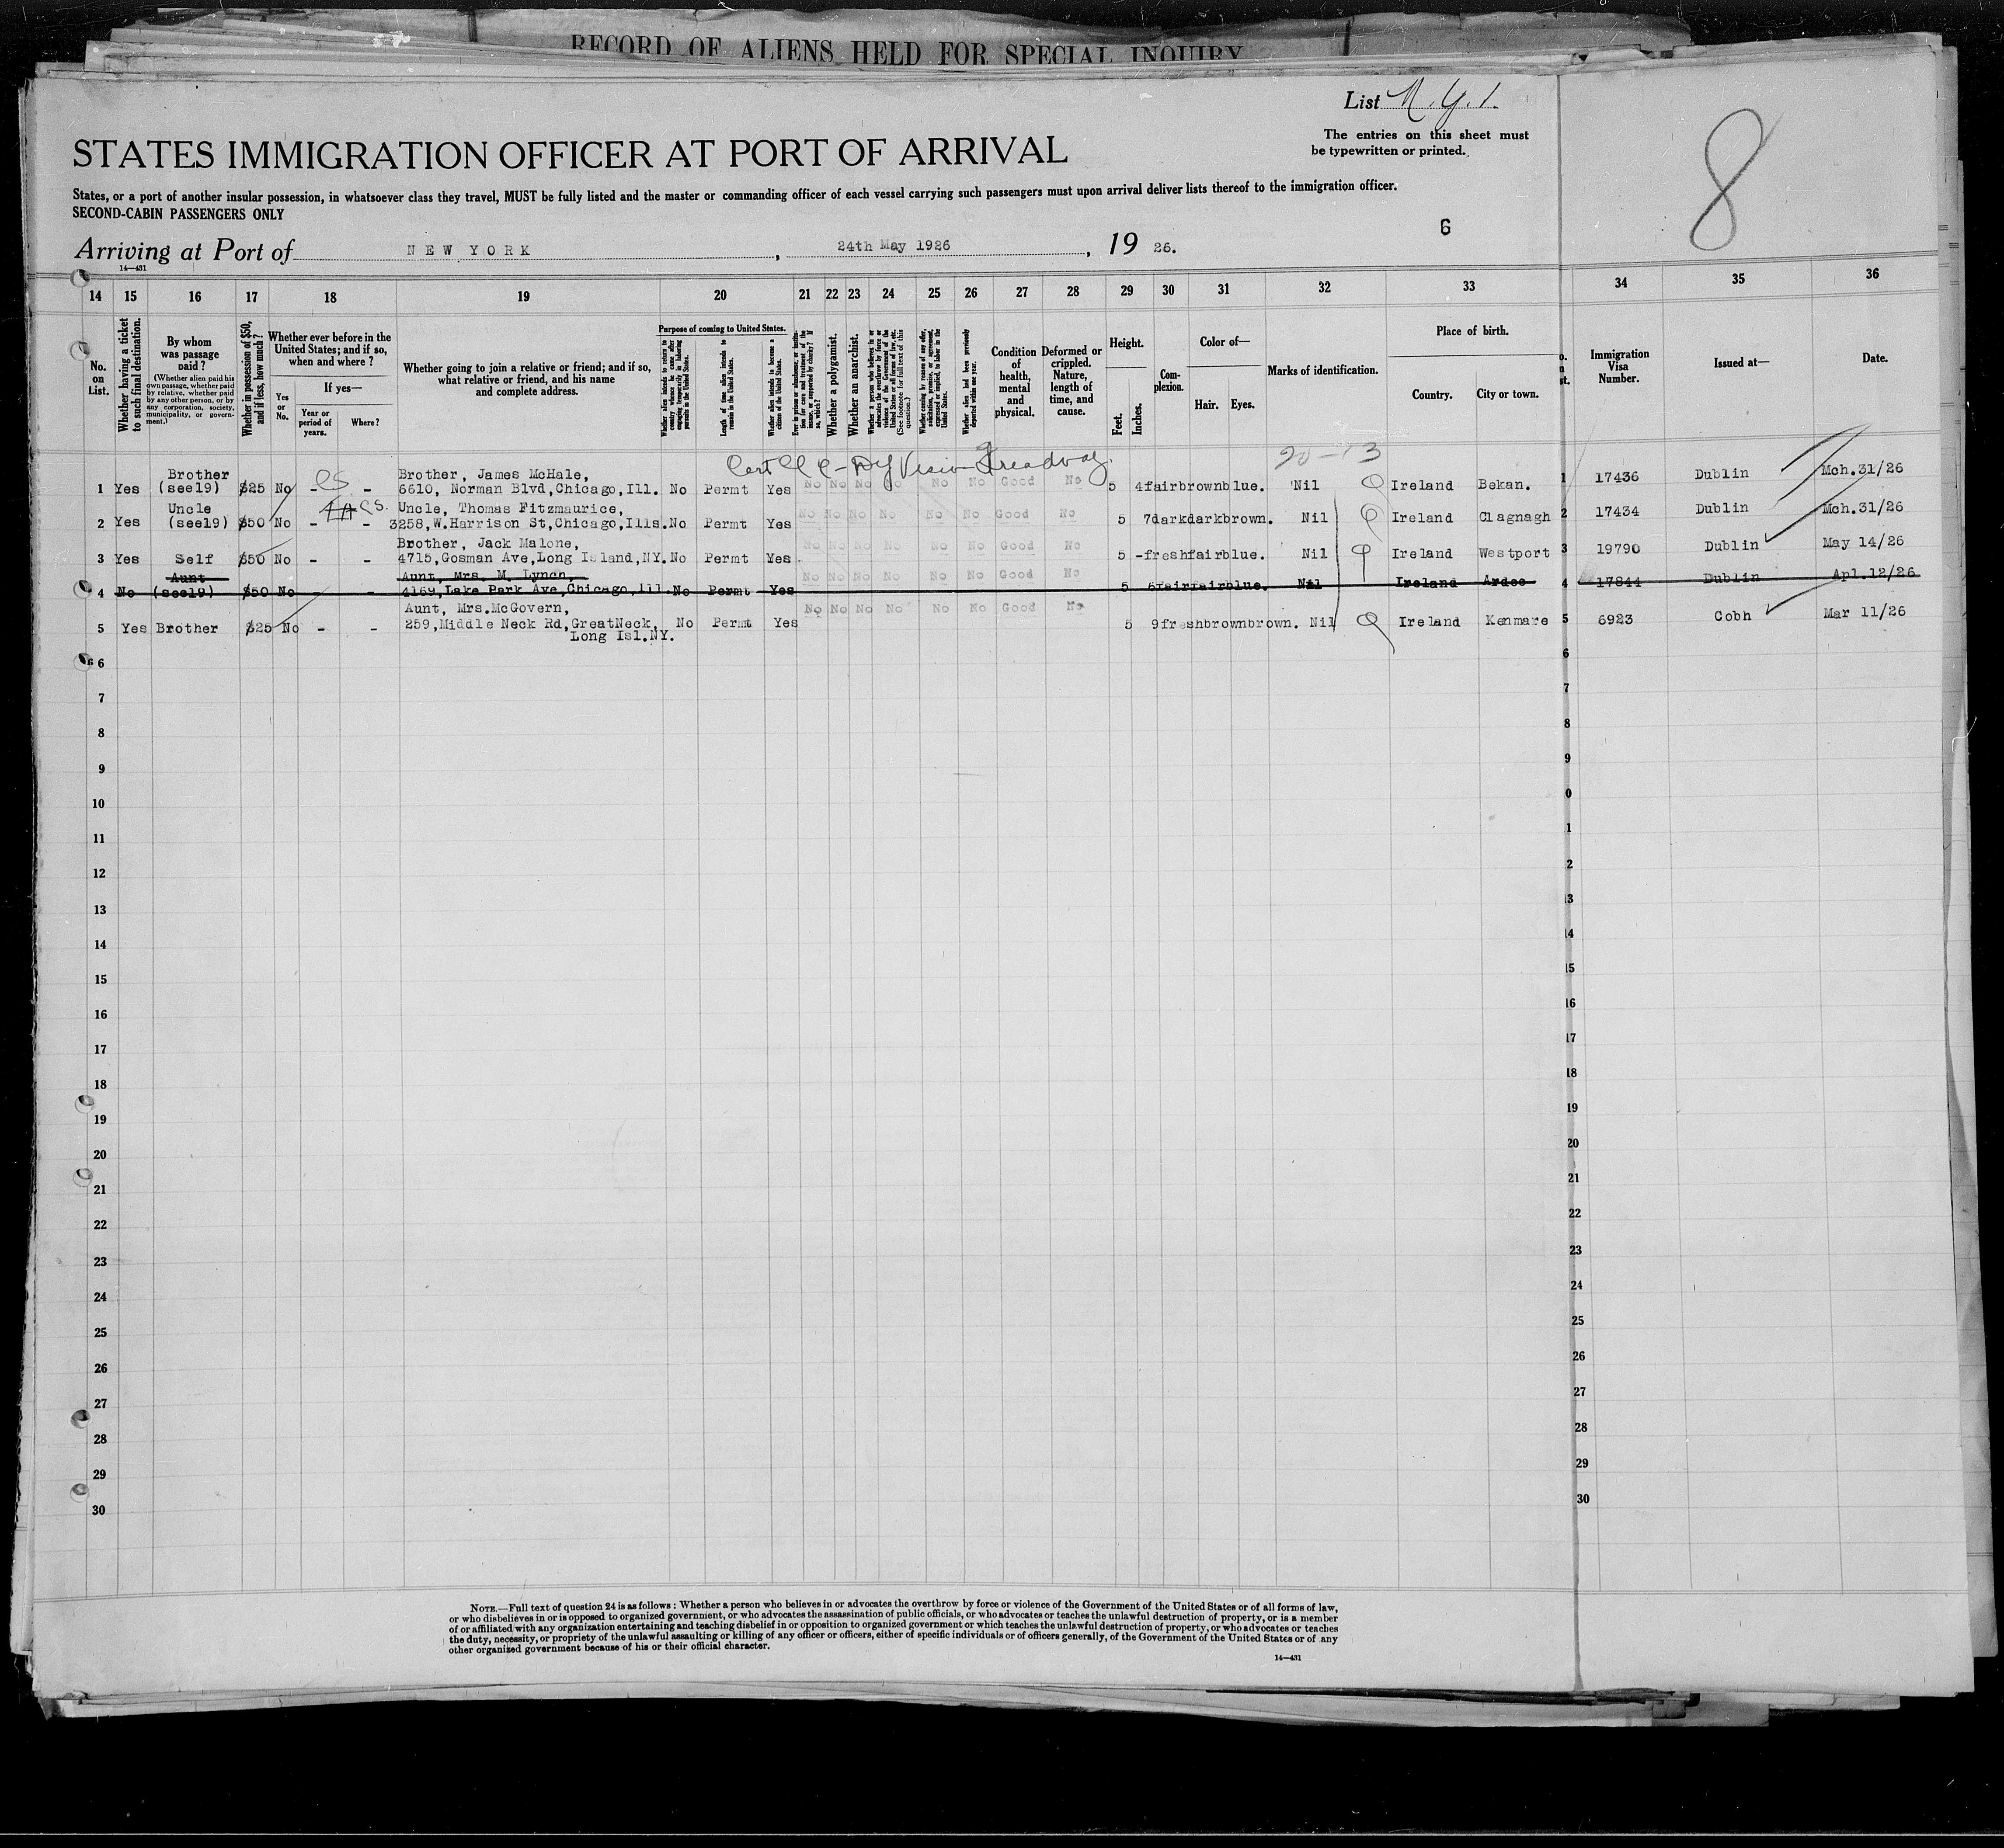 RECORD OF ALIENS HELD FOR SPECIAL INQUIRY
List N.Y.1.
The entries on this sheet must
be typewritten or printed.
8
STATES IMMIGRATION OFFICER AT PORT OF ARRIVAL
States, or a port of another insular possession, in whatsoever class they travel, MUST be fully listed and the master or commanding officer of each vessel carrying such passengers must upon arrival deliver lists thereof to the immigration officer.
SECOND-CABIN PASSENGERS ONLY
6
Arriving at Port of NEW YORK, 24th May 1926, 19 26.
14—431
14 15 16 17 18 19 20 21 22 23 24 25 26 27 28 29 30 31 32 33 34 35 36
No. on List.
Whether having a ticket to such final destination.
By whom was passage paid?
(Whether alien paid his own passage, whether paid by relative, whether paid by any other person, or by any corporation, society, municipality, or government.)
Whether in possession of $50, and if less, how much?
Whether ever before in the United States; and if so, when and where?
Yes or No.
If yes—
Year or period of years.
Where?
Whether going to join a relative or friend; and if so, what relative or friend, and his name and complete address.
Purpose of coming to United States.
Whether alien intends to return to country whence he came after engaging temporarily in laboring pursuits in the United States.
Length of time alien intends to remain in the United States.
Whether alien intends to become a citizen of the United States.
Ever in prison or almshouse, or institution for care and treatment of the insane, or supported by charity? If so, which?
Whether a polygamist.
Whether an anarchist.
(See footnote for full text of this question.)
Whether coming by reason of any offer, solicitation, promise, or agreement, expressed or implied, to labor in the United States.
Whether alien had been previously deported within one year.
Condition of health, mental and physical.
Deformed or crippled. Nature, length of time, and cause.
Height.
Feet. Inches.
Complexion.
Color of—
Hair. Eyes.
Marks of identification.
Place of birth.
Country. City or town.
Immigration Visa Number.
Issued at—
Date.
20-13
1 Yes Brother (see19) $25 No - - Brother, James McHale, 6610, Norman Blvd,Chicago,Ill. No Permt Yes No No No No No No Good No 5 4 fair brown blue. Nil Ireland Bekan. 1 17436 Dublin Mch.31/26
2 Yes Uncle (see19) $50 No - - Uncle, Thomas Fitzmaurice, 3258,W.Harrison St,Chicago,Ills. No Permt Yes No No No No No No Good No 5 7 dark dark brown. Nil Ireland Clagnagh 2 17434 Dublin Mch.31/26
3 Yes Self $50 No - - Brother, Jack Malone, 4715,Gosman Ave,Long Island,NY. No Permt Yes. No No No No No No Good No 5 - fresh fair blue. Nil Ireland Westport 3 19790 Dublin May 14/26
4 No Aunt (see19) $50 No - Aunt, Mrs. M. Lynch, 4169,Lake Park Ave,Chicago,Ill. No Permt Yes No No No No No No Good No 5 6 fair fair blue. Nil Ireland Ardee 4 17844 Dublin Apl.12/26
5 Yes Brother $25 No - - Aunt, Mrs.McGovern, 259,Middle Neck Rd,GreatNeck, Long Isl.NY. No Permt Yes No No No No No No Good No 5 9 fresh brown brown. Nil Ireland Kenmare 5 6923 Cobh Mar 11/26
6 6
7 7
8 8
9 9
10 0
11 1
12 2
13 13
14 14
15 15
16 16
17 17
18 18
19 19
20 20
21 21
22 22
23 23
24 24
25 25
26 26
27 27
28 28
29 29
30 30
NOTE.—Full text of question 24 is as follows: Whether a person who believes in or advocates the overthrow by force or violence of the Government of the United States or of all forms of law,
or who disbelieves in or is opposed to organized government, or who advocates the assassination of public officials, or who advocates or teaches the unlawful destruction of property, or is a member
of or affiliated with any organization entertaining and teaching disbelief in or opposition to organized government or which teaches the unlawful destruction of property, or who advocates or teaches
the duty, necessity, or propriety of the unlawful assaulting or killing of any officer or officers, either of specific individuals or of officers generally, of the Government of the United States or of any
other organized government because of his or their official character.
14—431